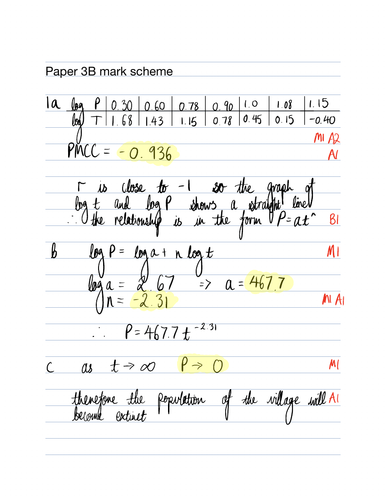 Paper 3B mark scheme
1a log P 0.30 0.60 0.78 0.90 1.0 1.08 1.15
log T 1.68 1.43 1.15 0.78 0.45 0.15 -0.40
M1 A2
PMCC = -0.936 A1
r is close to -1 so the graph of
log t and log P shows a straight line
∴ the relationship is in the form P=atⁿ B1
b log P = log a + n log t M1
log a = 2.67 => a = 467.7
n = -2.31 M1 A1
∴ P = 467.7 t^-2.31
c as t → ∞ P → 0 M1
therefore the population of the village will A1
become extinct